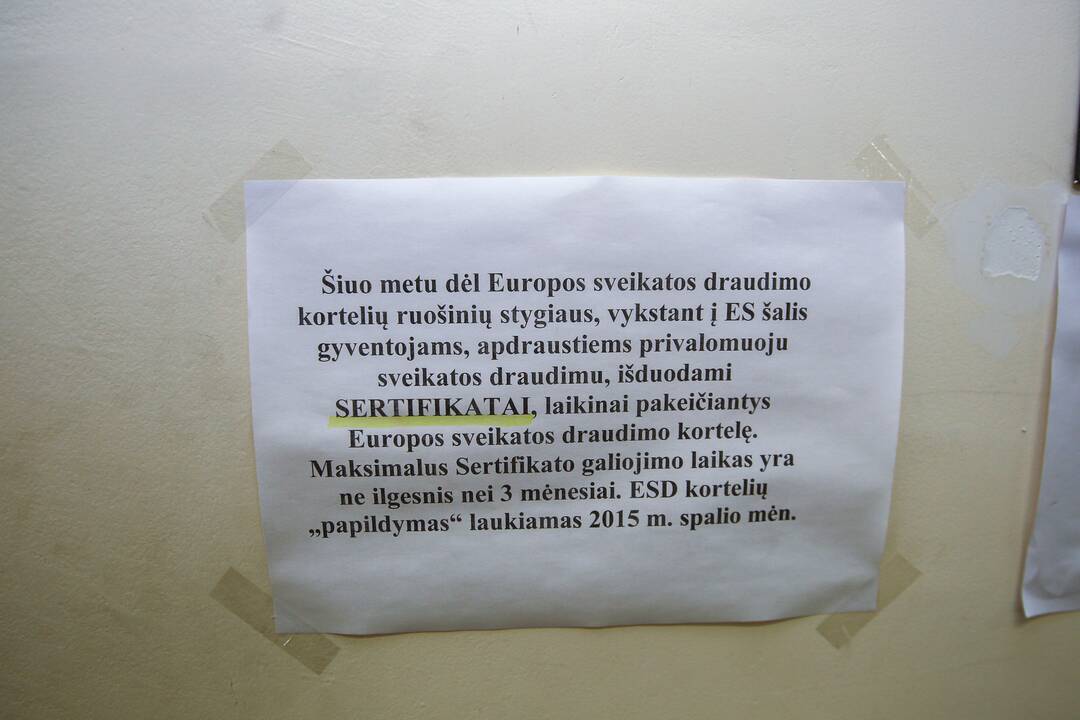 Šiuo metu dėl Europos sveikatos draudimo
kortelių ruošinių stygiaus, vykstant į ES šalis
gyventojams, apdraustiems privalomuoju
sveikatos draudimu, išduodami
SERTIFIKATAI, laikinai pakeičiantys
Europos sveikatos draudimo kortelę.
Maksimalus Sertifikato galiojimo laikas yra
ne ilgesnis nei 3 mėnesiai. ESD kortelių
„papildymas“ laukiamas 2015 m. spalio mėn.